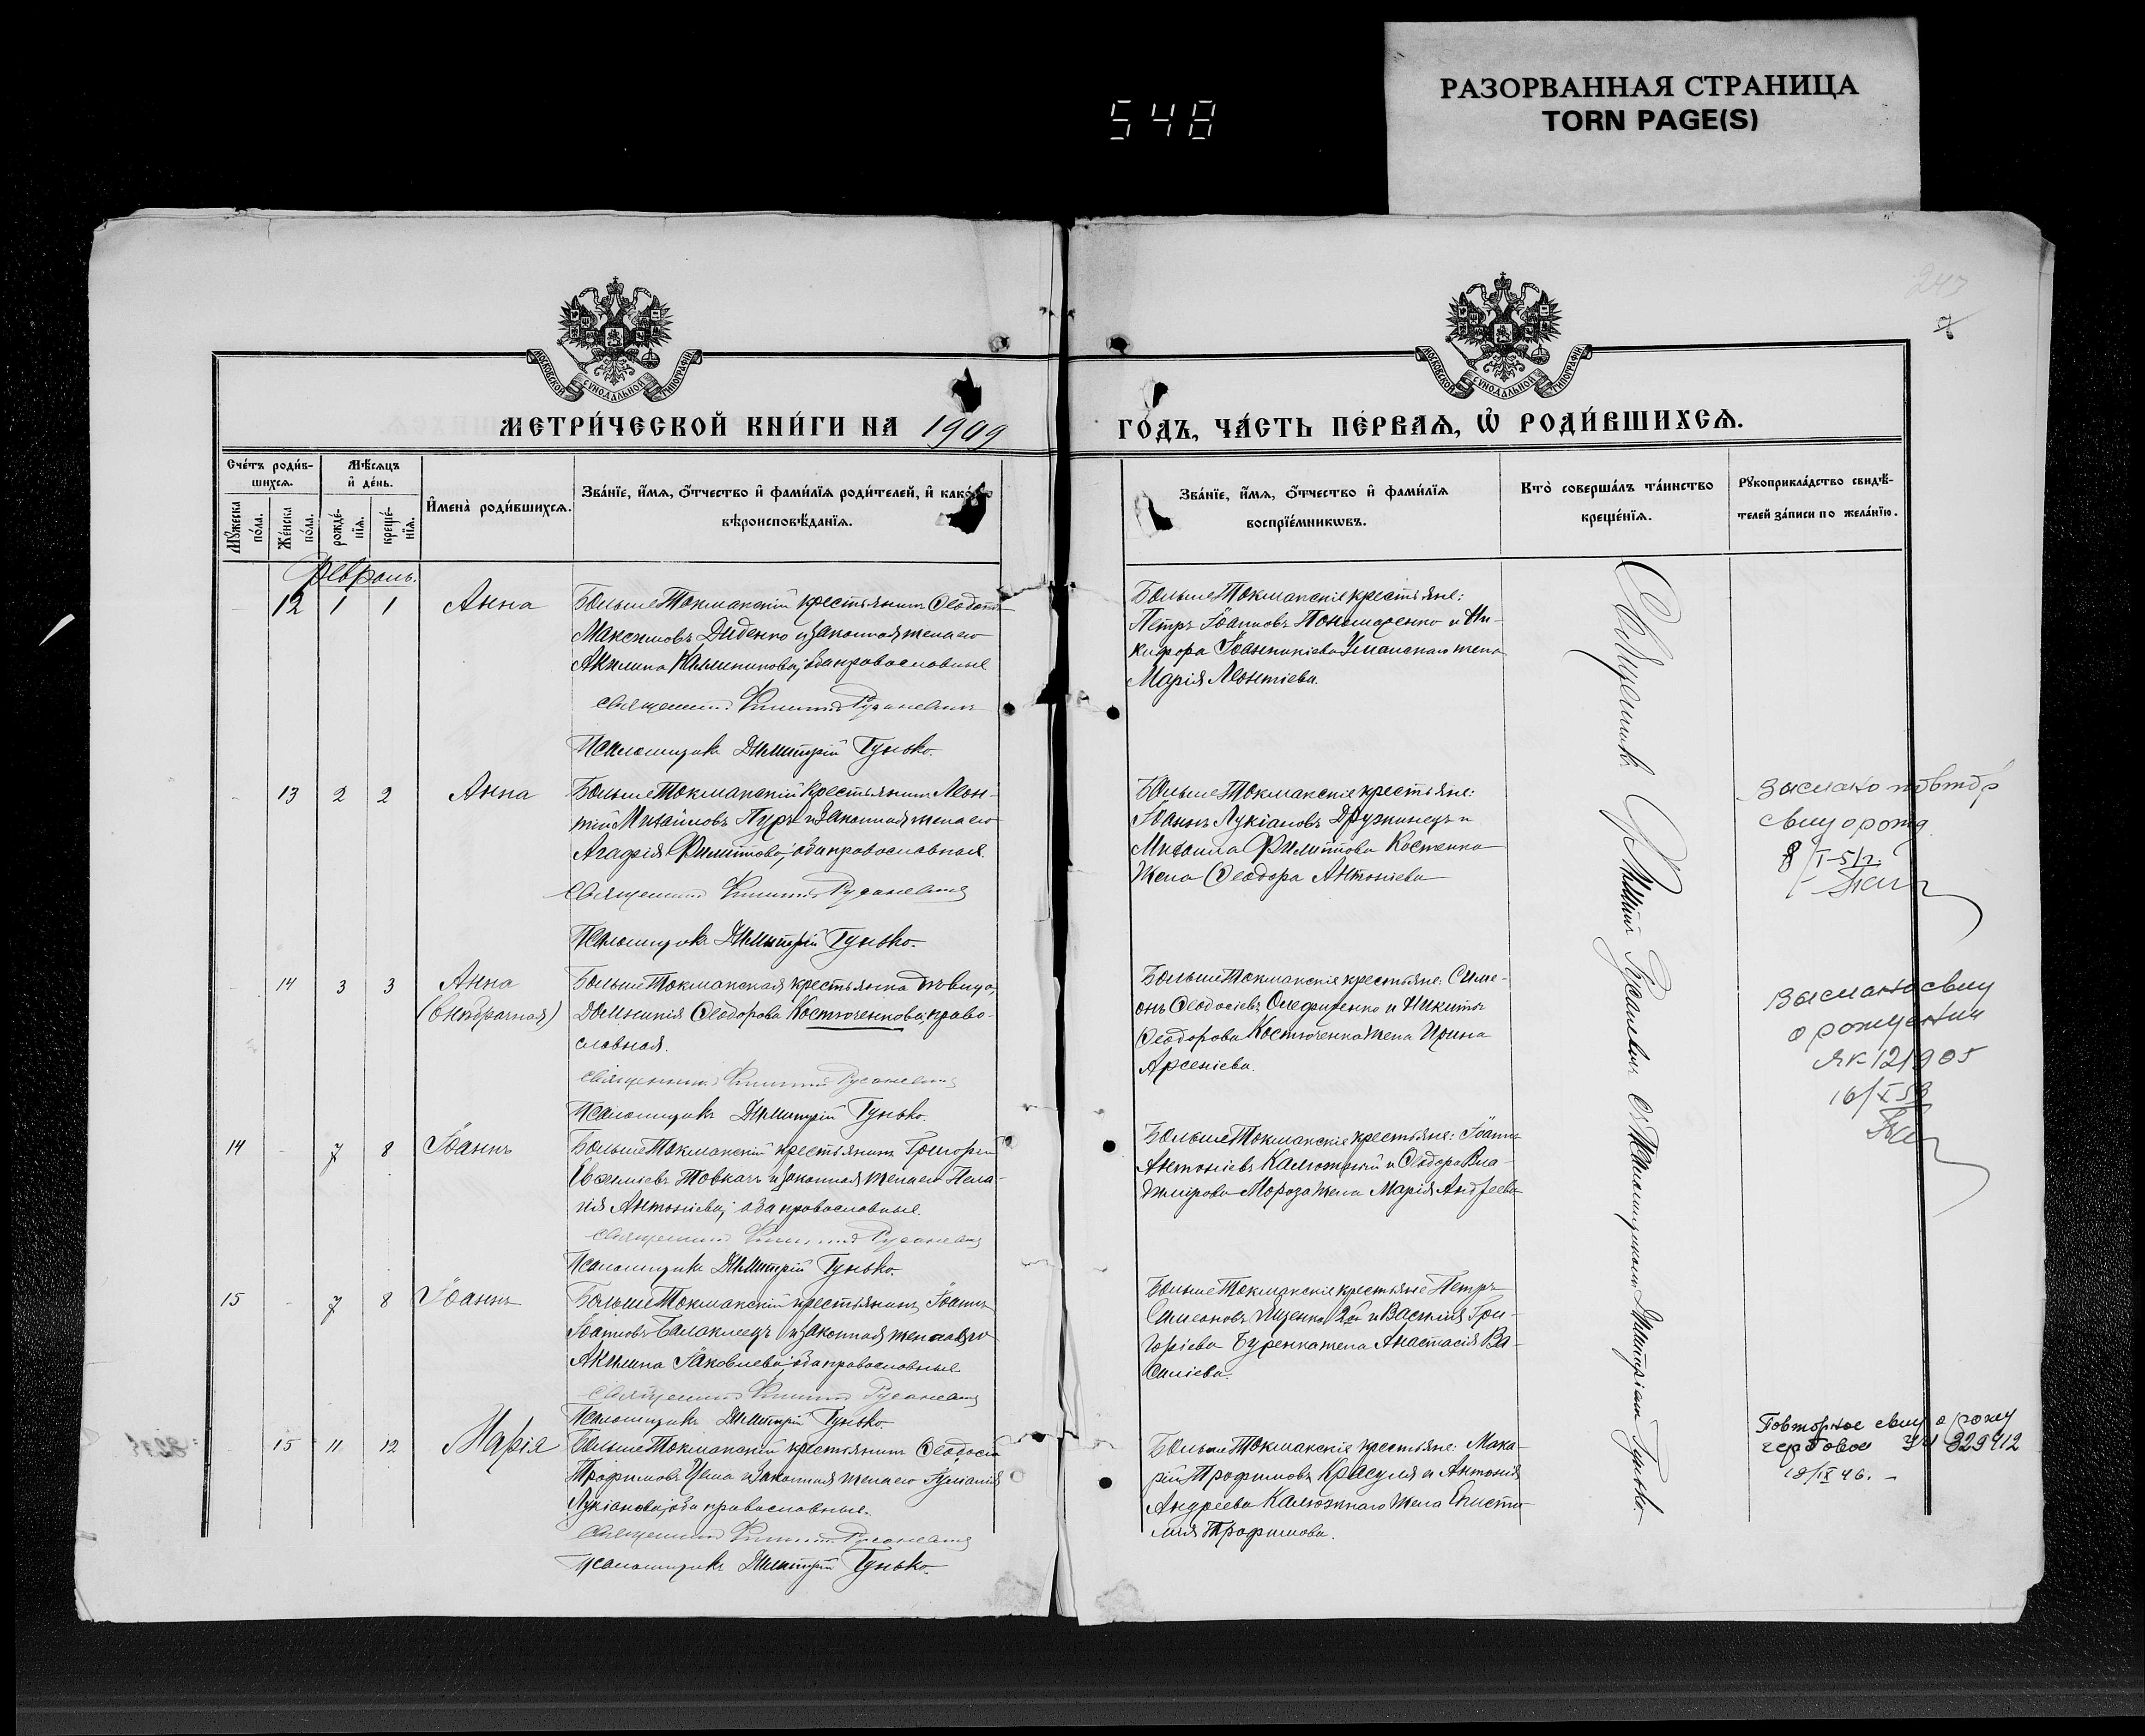 РАЗОРВАННАЯ СТРАНИЦА
TORN PAGE(S)
548
243
МОСКОВСКОЙ СѴНОДАЛЬНОЙ ТИПОГРАФІИ
МОСКОВСКОЙ СѴНОДАЛЬНОЙ ТИПОГРАФІИ
МЕТРИ́ЧЕСКОЙ КНИ́ГИ НА 1909
ГО́ДЪ, ЧА́СТЬ ПЕ́РВАѦ, Ѡ РОДИ́ВШИХСѦ.
Сче́тъ роди́в-
шихсѧ.
Мѣ́сѧцъ
и҆ де́нь.
Мꙋ́жеска
по́ла.
Же́нска
по́ла.
рожде́-
нїѧ.
креще́-
нїѧ.
И҆мена̀ роди́вшихсѧ.
Зва́нїе, и҆́мѧ, ѻ҆́тчество и҆ фамѝлїѧ роди́телей, и҆ како́гѡ
вѣроисповѣ́данїѧ.
Зва́нїе, и҆́мѧ, ѻ҆́тчество и҆ фамѝлїѧ
воспрїе́мникѡвъ.
Кто̀ соверша́лъ та́инство
креще́нїѧ.
Рꙋкоприкла́дство свидѣ́-
телей за́писи по жела́нїю.
Февраль.
12 1 1 Анна БольшеТокмакскій крестьянинъ Ѳеодотъ
Максимовъ Диденко и законная жена его
Акилина Каллиникова, оба православные
Священникъ Филиппъ Русаневичъ
Псаломщикъ Димитрій Гунько.
БольшеТокмакскіе крестьяне:
Петръ Іоанновъ Пономаренко и Ни-
кифора Іоанникіева Уманскаго жена
Марія Леонтіева.
13 2 2 Анна БольшеТокмакскій крестьянинъ Леон-
тій Михаиловъ Пуръ и законная жена его
Агафія Филиппова, оба православные.
Священникъ Филиппъ Русаневичъ
Псаломщикъ Димитрій Гунько.
БольшеТокмакскіе крестьяне:
Іоаннъ Лукіановъ Дружинецъ и
Михаила Филиппова Костенка
жена Ѳеодора Антоніева
Выслано повтор
свид о рожд
8/I-51г.
14 3 3 Анна
(внебрачная)
БольшеТокмакская крестьянка дѣвица,
Домникія Ѳеодорова Костюченкова, право-
славная.
Священникъ Филиппъ Русаневичъ
Псаломщикъ Димитрій Гунько.
БольшеТокмакскіе крестьяне: Симе-
онъ Ѳеодосіевъ Олефиренко и Никиты
Ѳеодорова Костюченка жена Ирина
Арсеніева.
Выслано свид
о рождении
ЯК 121905
16/
14 - 7 8 Іоаннъ БольшеТокмакскій крестьянинъ Григорій
Товкачъ и законная жена его Пела-
гія Антоніева, оба православные.
Священникъ Филиппъ Русаневичъ
Псаломщикъ Димитрій Гунько.
БольшеТокмакскіе крестьяне: Іоаннъ
Антоніевъ Калюжный и Ѳеодора Вла-
димірова Мороза жена Марія Андреева
15 - 7 8 Іоаннъ БольшеТокмакскій крестьянинъ Іоаннъ
Іоанновъ Балаклеецъ и законная жена его
Акилина Іаковлева, оба православные.
Священникъ Филиппъ Русаневичъ
Псаломщикъ Димитрій Гунько.
БольшеТокмакскіе крестьяне Петръ
Симеоновъ Яценко 2ой и Василія Гри-
горіева Буренка жена Анастасія Ва-
силіева.
- 15 11 12 Марія БольшеТокмакскій крестьянинъ Ѳеодосій
Трофимовъ и законная жена его Іуліанія
Лукіанова, оба православные.
Священникъ Филиппъ Русаневичъ
Псаломщикъ Димитрій Гунько.
БольшеТокмакскіе крестьяне: Мака-
рій Трофимовъ Красуля и Антонія
Андреева Калюжнаго жена Еписти-
мія Трофимова.
Повторное свид о рожд
гербовое 329412
18/IX 46.
Священникъ Филиппъ Русаневичъ съ Псаломщикомъ Димитріемъ Гунько.